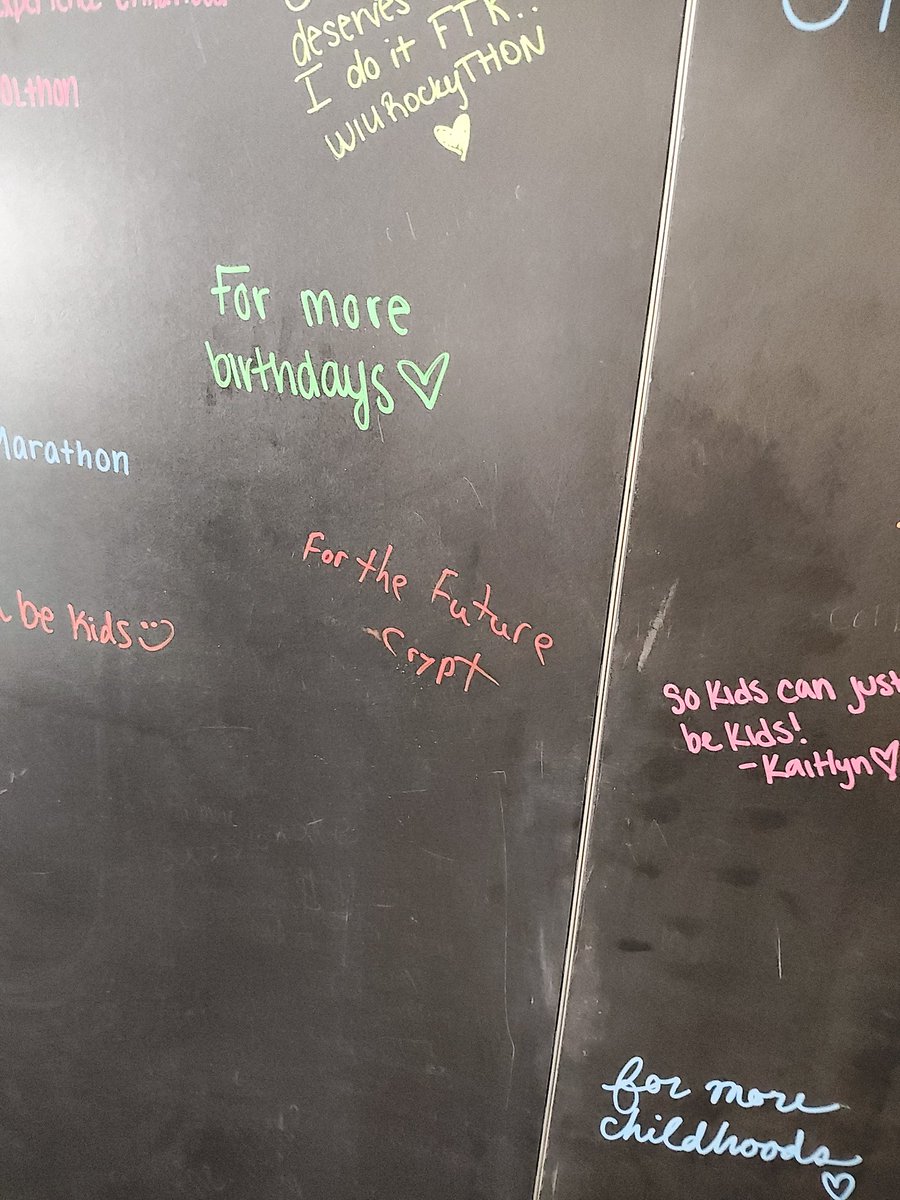 experience
deserves
I do it FTK..
WIURockyTHON
For more
birthdays
Marathon
For the Future
-Crypt
be kids
So kids can just
be kids!
-Kaitlyn
for more
childhoods